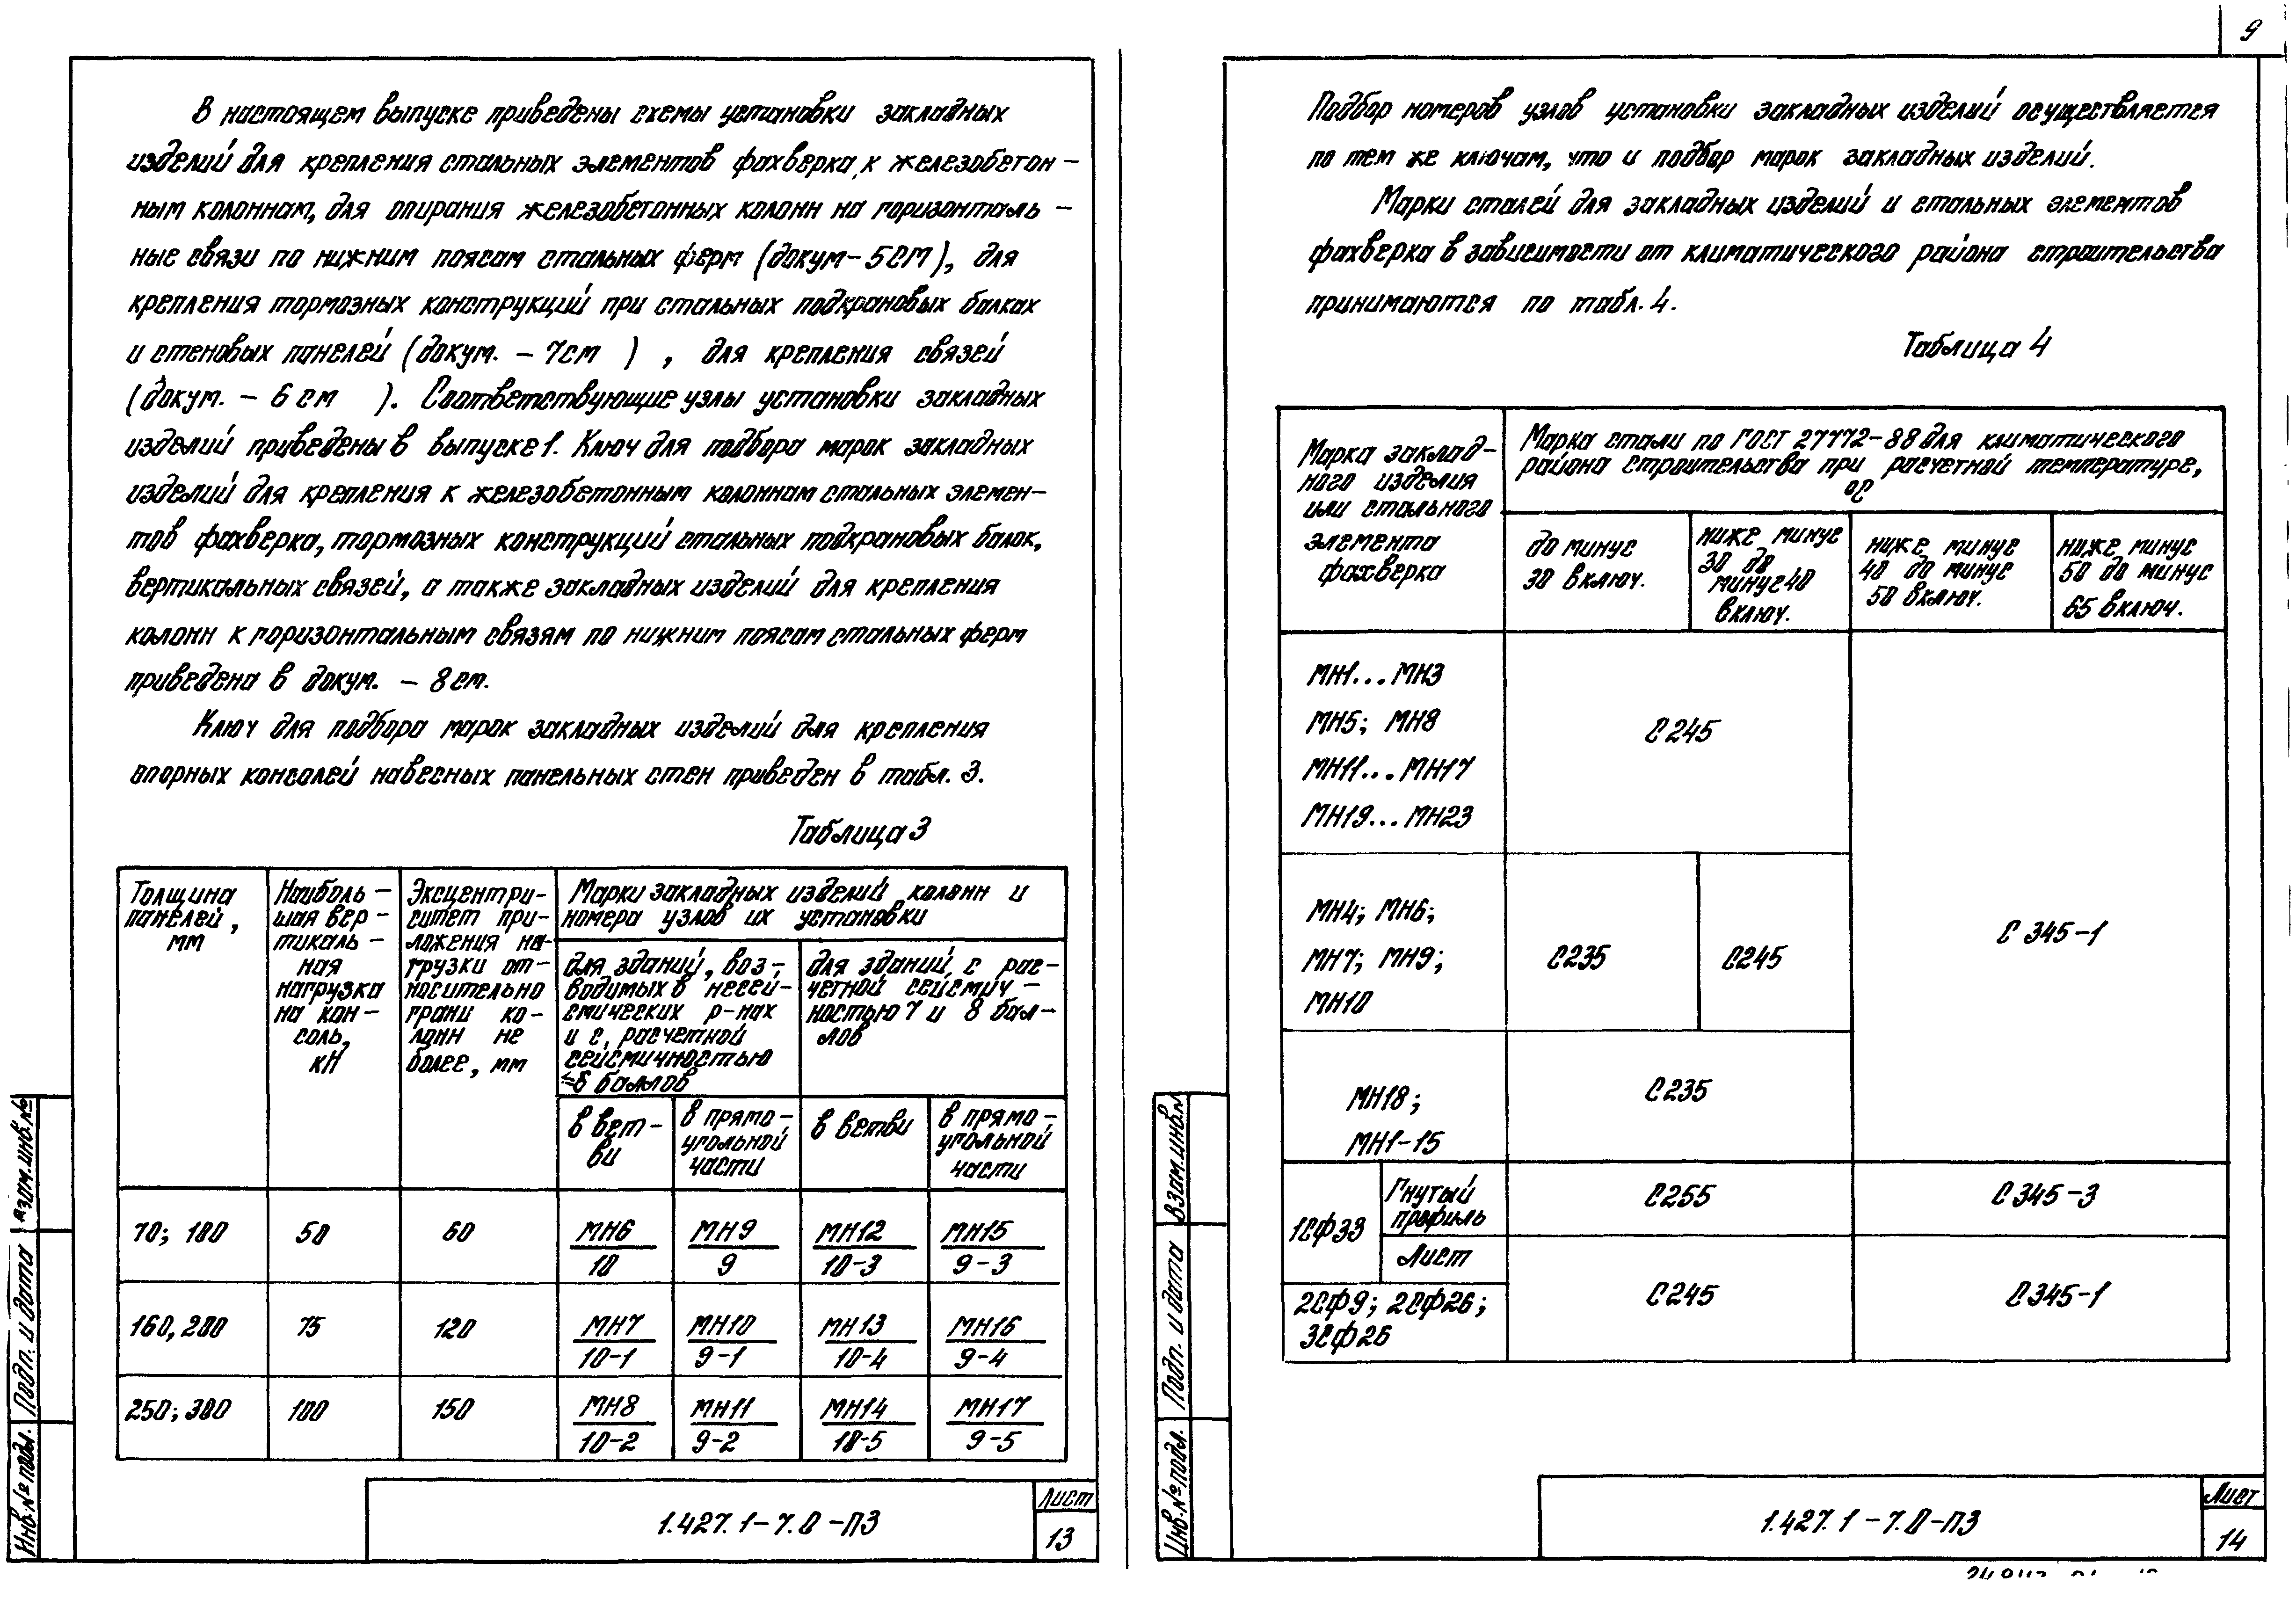 9
В настоящем выпуске приведены схемы установки закладных
изделий для крепления стальных элементов фахверка к железобетон-
ным колоннам, для опирания железобетонных колонн на горизонталь-
ные связи по нижним поясам стальных ферм (докум-5СМ), для
крепления тормозных конструкций при стальных подкрановых балках
и стеновых панелей (докум. - 7см ) , для крепления связей
(докум. - 6 см ). Соответствующие узлы установки закладных
изделий приведены в выпуске 1. Ключ для подбора марок закладных
изделий для крепления к железобетонным колоннам стальных элемен-
тов фахверка, тормозных конструкций стальных подкрановых балок,
вертикальных связей, а также закладных изделий для крепления
колонн к горизонтальным связям по нижним поясам стальных ферм
приведена в докум. - 8 см.
Ключ для подбора марок закладных изделий для крепления
опорных консолей навесных панельных стен приведен в табл. 3.
Таблица 3
Толщина
панелей,
мм
Наиболь-
шая вер-
тикаль-
ная
нагрузка
на кон-
соль,
кН
Эксцентри-
ситет при-
ложения на-
грузки от-
носительно
грани ко-
лонн не
более, мм
Марки закладных изделий колонн и
номера узлов их установки
для зданий, воз-
водимых в несей-
смических р-нах
и с расчетной
сейсмичностью
≤6 баллов
для зданий с рас-
четной сейсмич-
ностью 7 и 8 бал-
лов
в вет-
ви
в прямо-
угольной
части
в ветви
в прямо-
угольной
части
70; 100 50 60 МН6 МН9 МН12 МН15
10 9 10-3 9-3
160, 200 75 120 МН7 МН10 МН13 МН16
10-1 9-1 10-4 9-4
250; 300 100 150 МН8 МН11 МН14 МН17
10-2 9-2 18-5 9-5
Взам.инв.№
Подп. и дата
Инв.№ подл.
1.427.1-7.0-ПЗ
Лист
13
Подбор номеров узлов установки закладных изделий осуществляется
по тем же ключам, что и подбор марок закладных изделий.
Марки сталей для закладных изделий и стальных элементов
фахверка в зависимости от климатического района строительства
принимаются по табл. 4.
Таблица 4
Марка заклад-
ного изделия
или стального
элемента
фахверка
Марка стали по ГОСТ 27772-88 для климатического
района строительства при расчетной температуре,
°С
до минус
30 включ.
ниже минус
30 до
минус 40
включ.
ниже минус
40 до минус
50 включ.
ниже минус
50 до минус
65 включ.
МН1...МН3
МН5; МН8
МН11...МН17
МН19...МН23
С245
МН4; МН6;
МН7; МН9;
МН10
С235
С245
С 345-1
МН18;
МН1-15
С235
1СФ33
Гнутый
профиль
С255
С345-3
Лист
2СФ9; 2СФ26;
3СФ26
С245
С345-1
Взам.инв.№
Подп. и дата
Инв.№ подл.
1.427.1-7.0-ПЗ
Лист
14